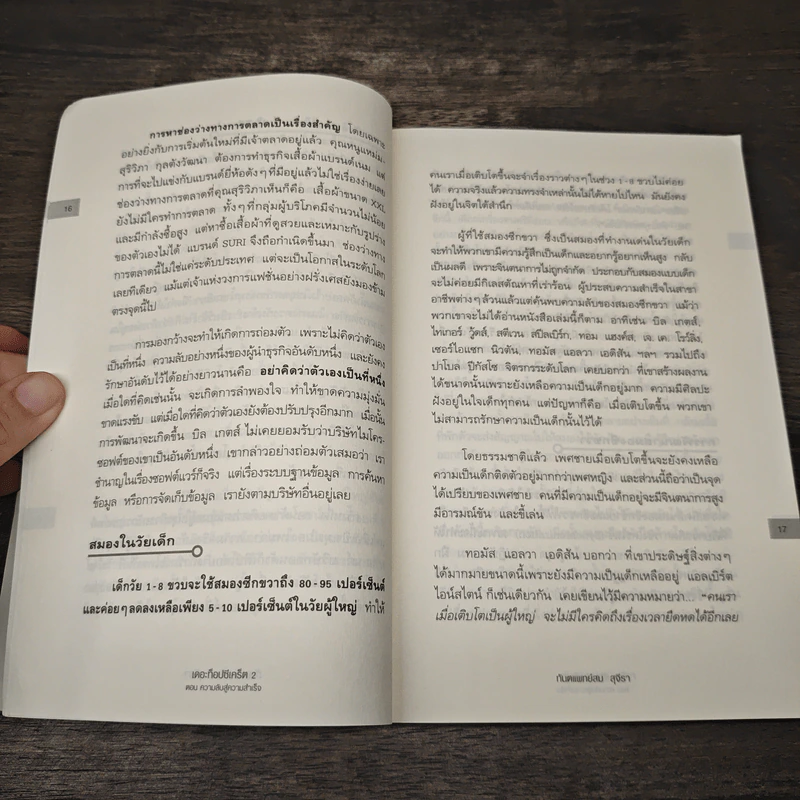 การหาช่องว่างทางการตลาดเป็นเรื่องสำคัญ โดยเฉพาะ
อย่างยิ่งกับการเริ่มต้นใหม่ที่มีเจ้าตลาดอยู่แล้ว คุณหนูแหม่ม-
สุริวิภา กุลตังวัฒนา ต้องการทำธุรกิจเสื้อผ้าแบรนด์เนม แต่
การที่จะไปแข่งกับแบรนด์ยี่ห้อดังๆ ที่มีอยู่แล้วไม่ใช่เรื่องง่ายเลย
ช่องว่างทางการตลาดที่คุณสุริวิภาเห็นก็คือ เสื้อผ้าขนาด XXL
ยังไม่มีใครทำการตลาด ทั้งๆ ที่กลุ่มผู้บริโภคมีจำนวนไม่น้อย
และมีกำลังซื้อสูง แต่หาซื้อเสื้อผ้าที่ดูสวยและเหมาะกับรูปร่าง
ของตัวเองไม่ได้ แบรนด์ SURI จึงถือกำเนิดขึ้นมา ช่องว่างทาง
การตลาดนี้ไม่ใช่แค่ระดับประเทศ แต่จะเป็นโอกาสในระดับโลก
เลยทีเดียว แม้แต่เจ้าแห่งวงการแฟชั่นอย่างฝรั่งเศสยังมองข้าม
ตรงจุดนี้ไป
16
การมองกว้างจะทำให้เกิดการถ่อมตัว เพราะไม่คิดว่าตัวเอง
เป็นที่หนึ่ง ความลับอย่างหนึ่งของผู้นำธุรกิจอันดับหนึ่ง และยังคง
รักษาอันดับไว้ได้อย่างยาวนานคือ อย่าคิดว่าตัวเองเป็นที่หนึ่ง
เมื่อใดที่คิดเช่นนั้น จะเกิดการลำพองใจ ทำให้ขาดความมุ่งมั่น
ขาดแรงขับ แต่เมื่อใดที่คิดว่าตัวเองยังต้องปรับปรุงอีกมาก เมื่อนั้น
การพัฒนาจะเกิดขึ้น บิล เกตส์ ไม่เคยยอมรับว่าบริษัทไมโคร-
ซอฟต์ของเขาเป็นอันดับหนึ่ง เขากล่าวอย่างถ่อมตัวเสมอว่า เรา
ชำนาญในเรื่องซอฟต์แวร์ก็จริง แต่เรื่องระบบฐานข้อมูล การค้นหา
ข้อมูล หรือการจัดเก็บข้อมูล เรายังตามบริษัทอื่นอยู่เลย
สมองในวัยเด็ก
เด็กวัย 1-8 ขวบจะใช้สมองซีกขวาถึง 80-95 เปอร์เซ็นต์
และค่อยๆ ลดลงเหลือเพียง 5-10 เปอร์เซ็นต์ในวัยผู้ใหญ่ ทำให้
เดอะท็อปซีเคร็ต 2
ตอน ความลับสู่ความสำเร็จ
คนเราเมื่อเติบโตขึ้นจะจำเรื่องราวต่างๆ ในช่วง 1-8 ขวบไม่ค่อย
ได้ ความจริงแล้วความทรงจำเหล่านั้นไม่ได้หายไปไหน มันยังคง
ฝังอยู่ในจิตใต้สำนึก
ผู้ที่ใช้สมองซีกขวา ซึ่งเป็นสมองที่ทำงานเด่นในวัยเด็ก
จะทำให้พวกเขามีความรู้สึกเป็นเด็กและอยากรู้อยากเห็นสูง กลับ
เป็นผลดี เพราะจินตนาการไม่ถูกจำกัด ประกอบกับสมองแบบเด็ก
จะไม่ค่อยมีกิเลสตัณหาที่เร่าร้อน ผู้ประสบความสำเร็จในสาขา
อาชีพต่างๆ ล้วนแล้วแต่ค้นพบความลับของสมองซีกขวา แม้ว่า
พวกเขาจะไม่ได้อ่านหนังสือเล่มนี้ก็ตาม อาทิเช่น บิล เกตส์,
ไทเกอร์ วู้ดส์, สตีเวน สปีลเบิร์ก, ทอม แฮงค์ส, เจ. เค. โรว์ลิ่ง,
เซอร์ไอแซก นิวตัน, โทมัส แอลวา เอดิสัน ฯลฯ รวมไปถึง
ปาโบล ปีกัสโซ จิตรกรระดับโลก เคยบอกว่า ที่เขาสร้างผลงาน
ได้ขนาดนั้นเพราะยังเหลือความเป็นเด็กอยู่มาก ความมีศิลปะ
ฝังอยู่ในใจเด็กทุกคน แต่ปัญหาก็คือ เมื่อเติบโตขึ้น พวกเขา
ไม่สามารถรักษาความเป็นเด็กนั้นไว้ได้
โดยธรรมชาติแล้ว เพศชายเมื่อเติบโตขึ้นจะยังคงเหลือ
ความเป็นเด็กติดตัวอยู่มากกว่าเพศหญิง และส่วนนี้ถือว่าเป็นจุด
ได้เปรียบของเพศชาย คนที่มีความเป็นเด็กอยู่จะมีจินตนาการสูง
มีอารมณ์ขัน และขี้เล่น
17
ทอมัส แอลวา เอดิสัน บอกว่า ที่เขาประดิษฐ์สิ่งต่างๆ
ได้มากมายขนาดนี้เพราะยังมีความเป็นเด็กเหลืออยู่ แอลเบิร์ต
ไอน์สไตน์ ก็เช่นเดียวกัน เคยเขียนไว้มีความหมายว่า... "คนเรา
เมื่อเติบโตเป็นผู้ใหญ่ จะไม่มีใครคิดถึงเรื่องเวลายืดหดได้อีกเลย
ทันตแพทย์สม สุจีรา